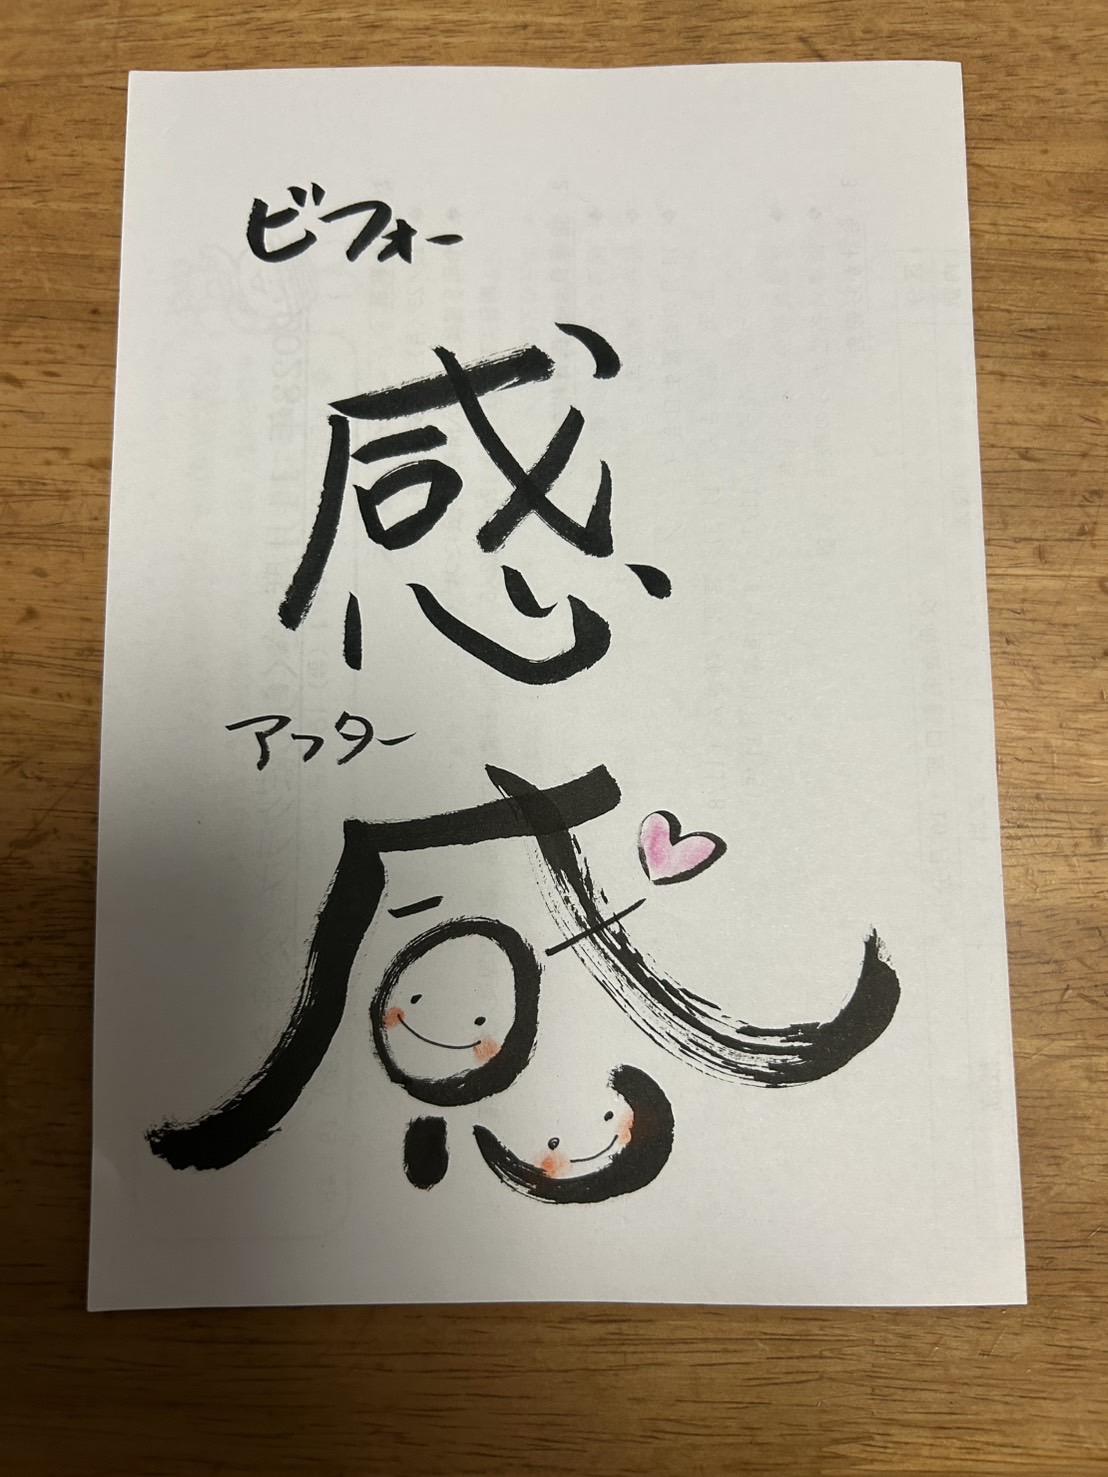 ビフォー
感
アフター
感